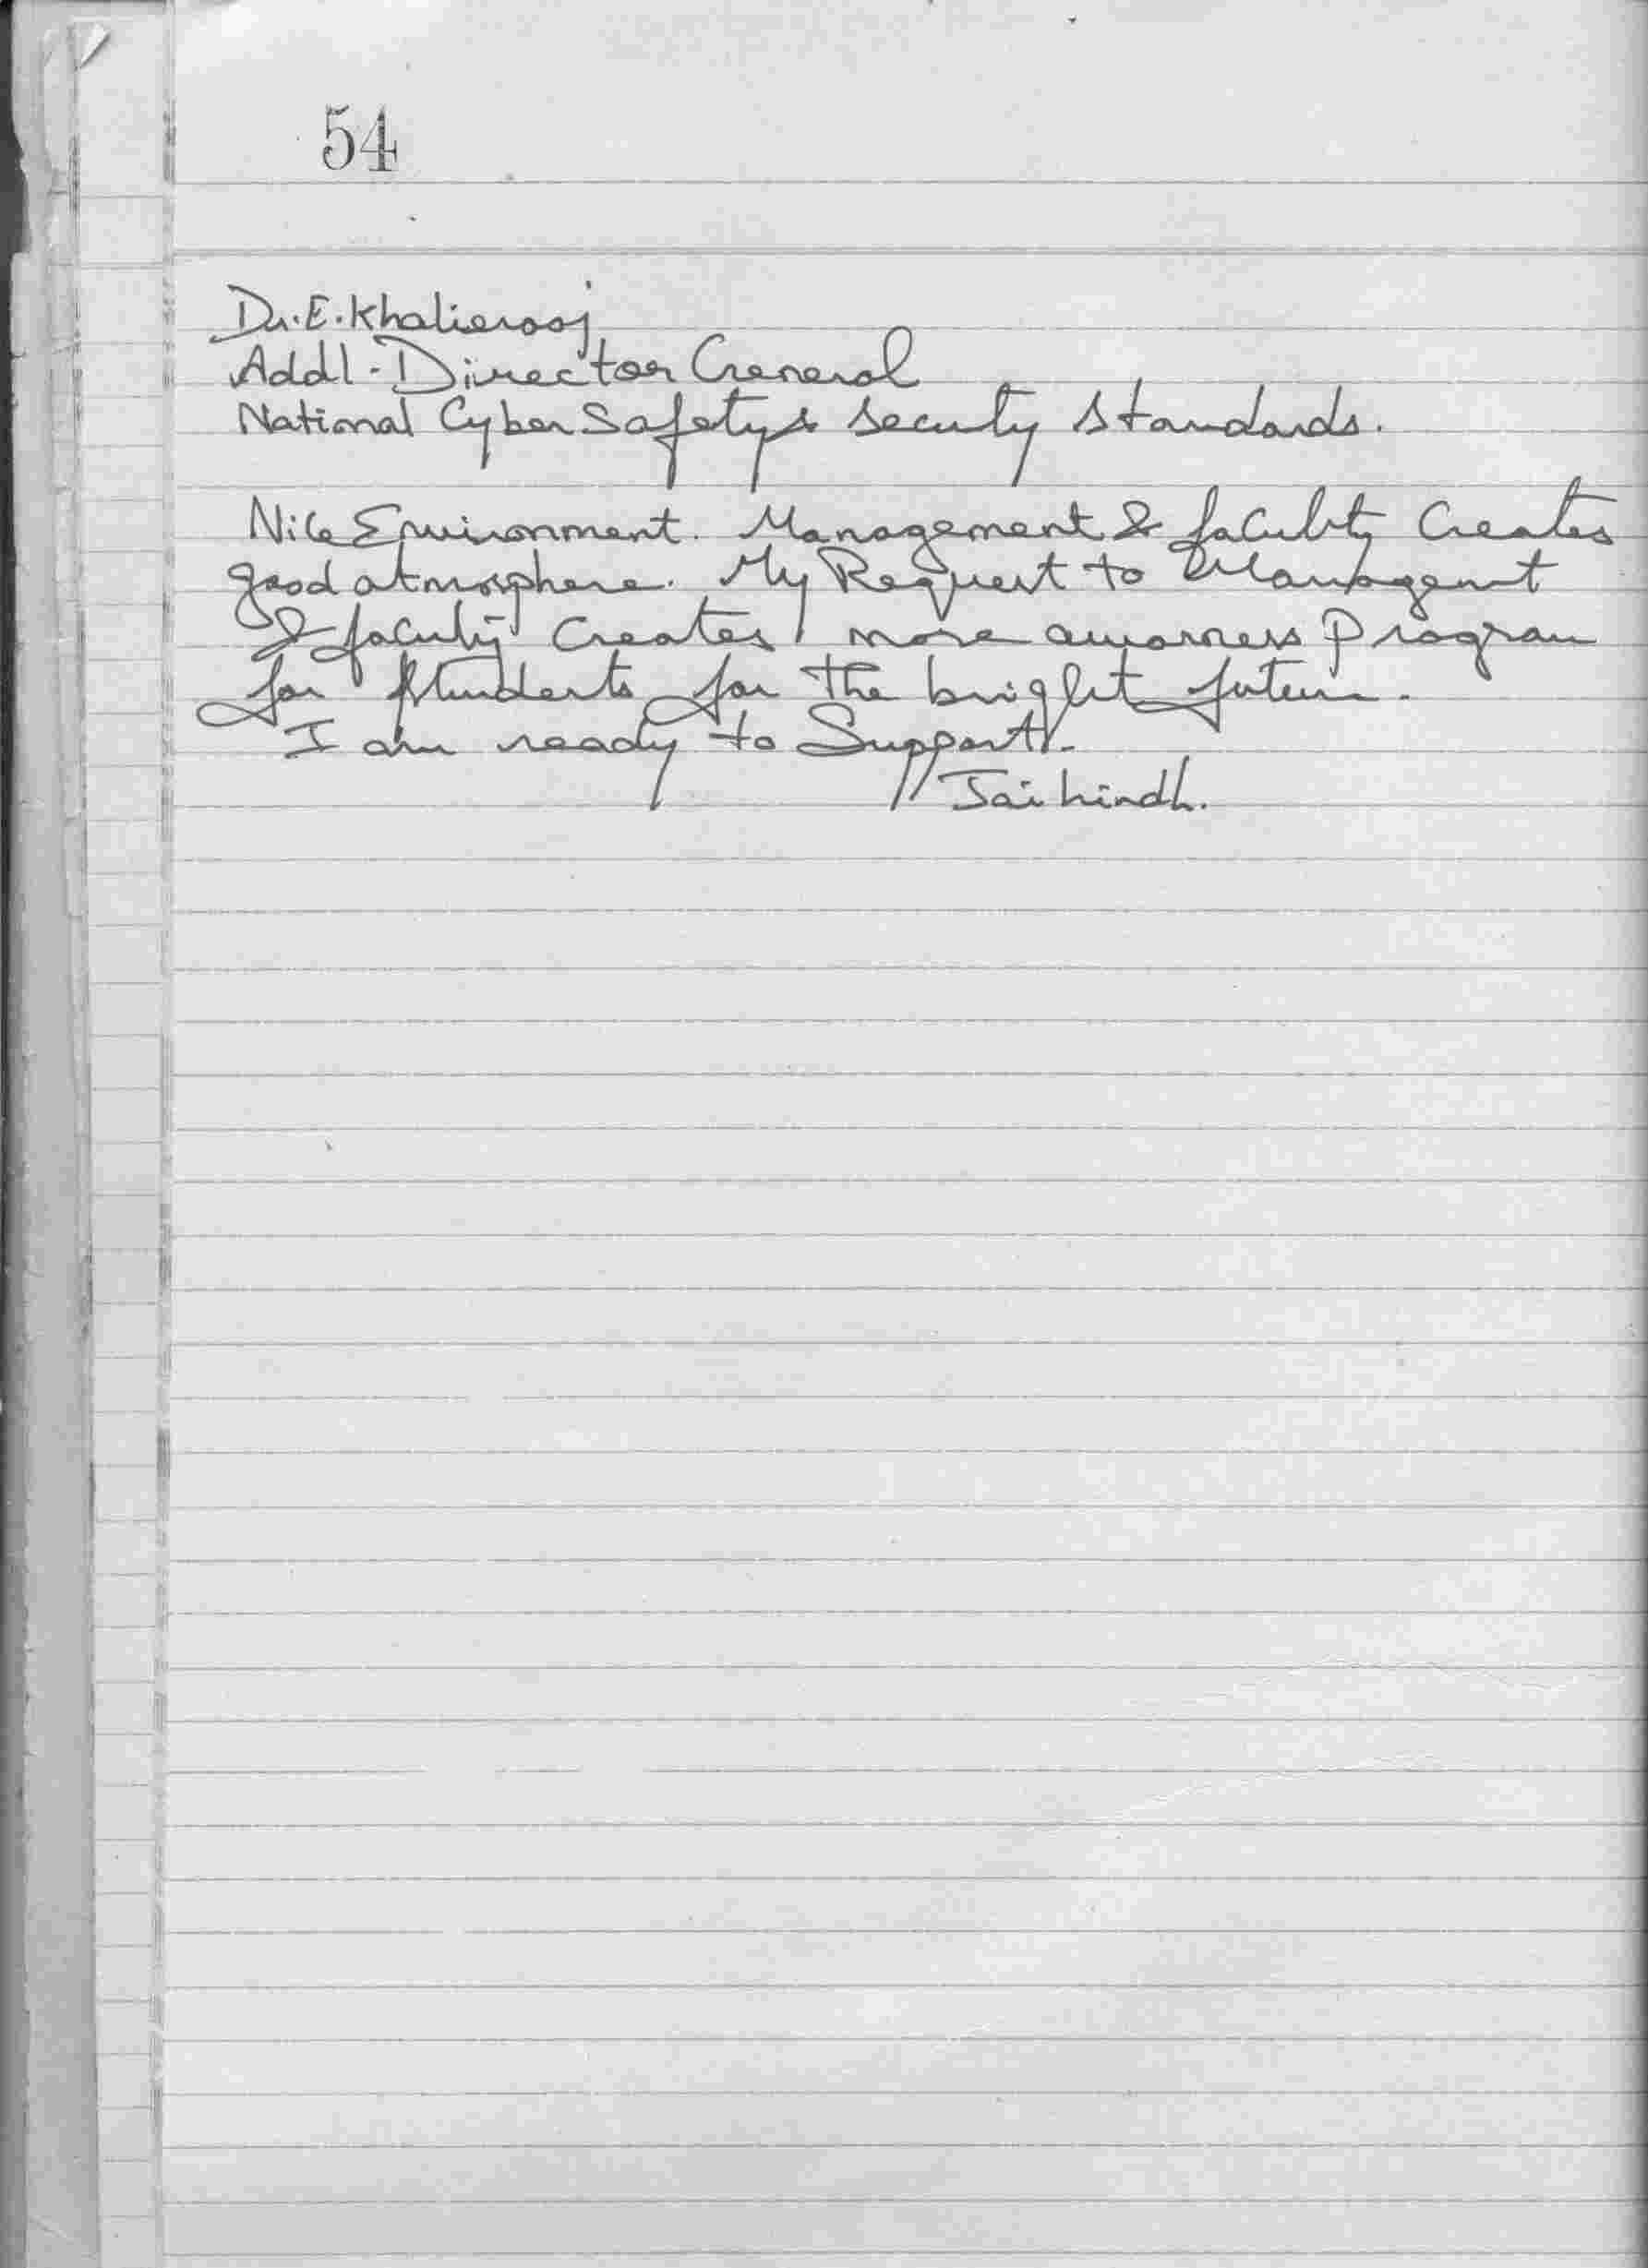 54
Dr.E.Khalieraaj
Addl.Director General
National Cyber Safety & Security Standards.
Nice Environment. Management & faculty Creates
good atmosphere. My Request to Management
& faculty Creates more awarness Program
for Students for the bright future.
I am ready to Support.
Jai hindh.